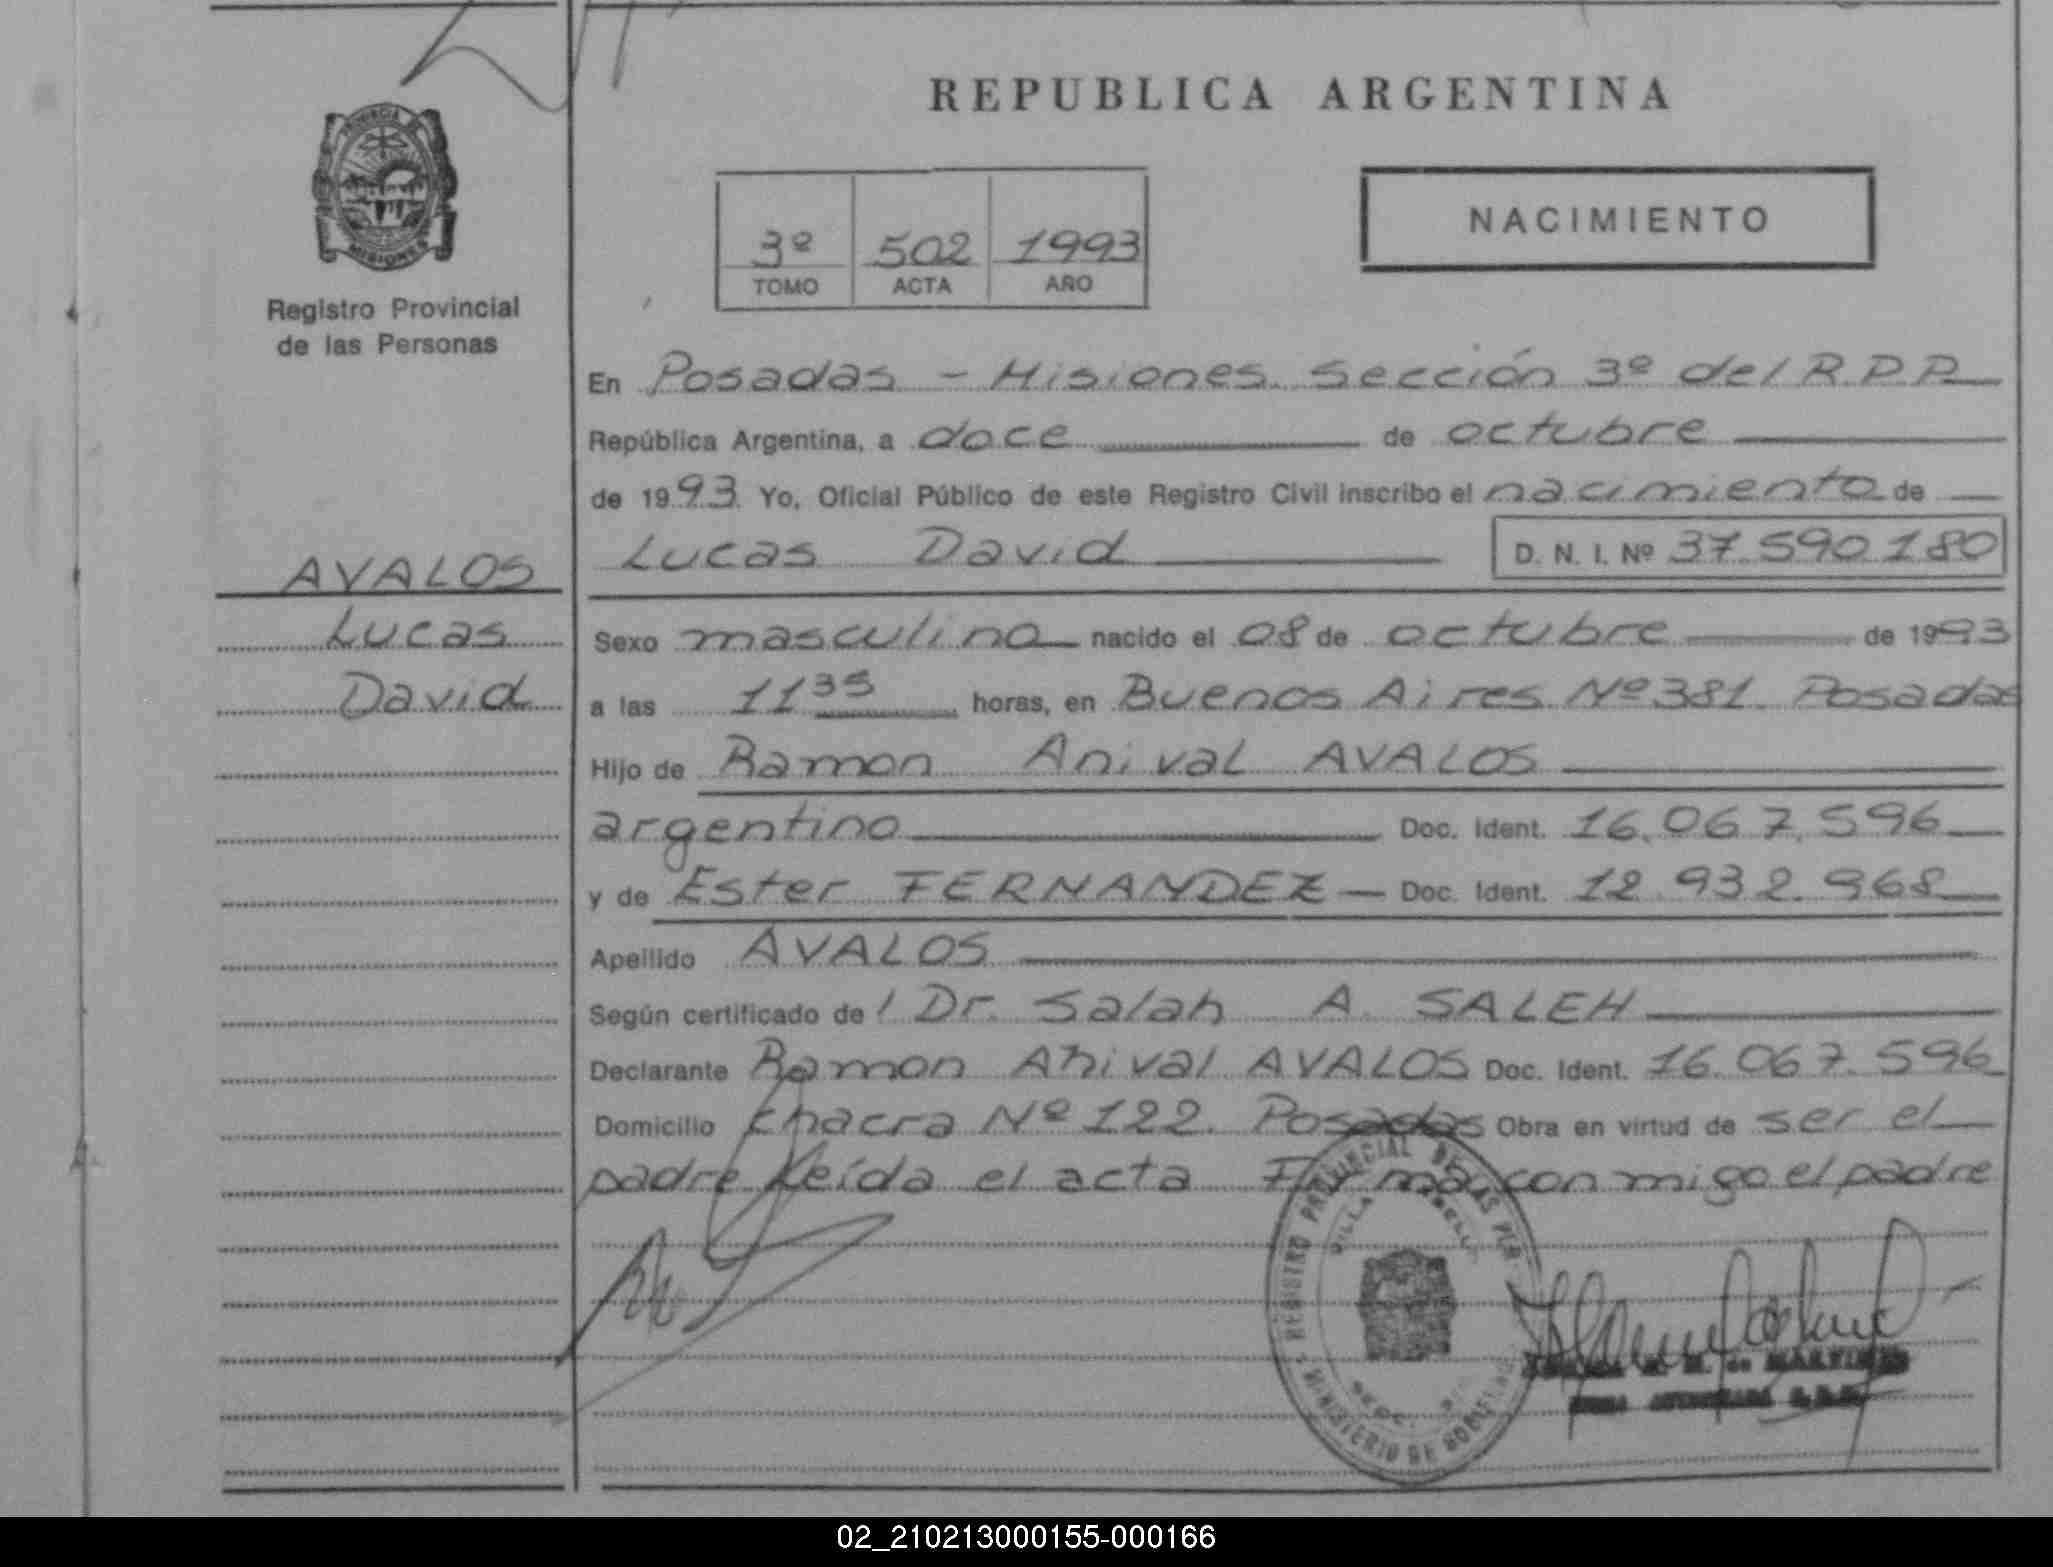 REPUBLICA ARGENTINA
PROVINCIA DE
MISIONES
Registro Provincial
de las Personas
3º 502 1993
TOMO ACTA AÑO
NACIMIENTO
En Posadas - Misiones. Sección 3º del R.P.P.
República Argentina, a doce de octubre
de 1993. Yo, Oficial Público de este Registro Civil inscribo el nacimiento de
Lucas David D. N. I. Nº 37.590.180
AVALOS
Lucas
David
Sexo masculino nacido el 08 de octubre de 1993
a las 11 35 horas, en Buenos Aires Nº 381. Posadas
Hijo de Ramon Anival AVALOS
argentino Doc. Ident. 16.067.596
y de Ester FERNANDEZ Doc. Ident. 12.932.968
Apellido AVALOS
Según certificado del Dr. Salah A. SALEH
Declarante Ramon Anival AVALOS Doc. Ident. 16.067.596
Domicilio chacra Nº 122. Posadas Obra en virtud de ser el
padre Leída el acta Firma con migo el padre
REGISTRO PROVINCIAL DE LAS PER
VILLA
SECC.
MINISTERIO DE
de MARTINEZ
02_210213000155-000166